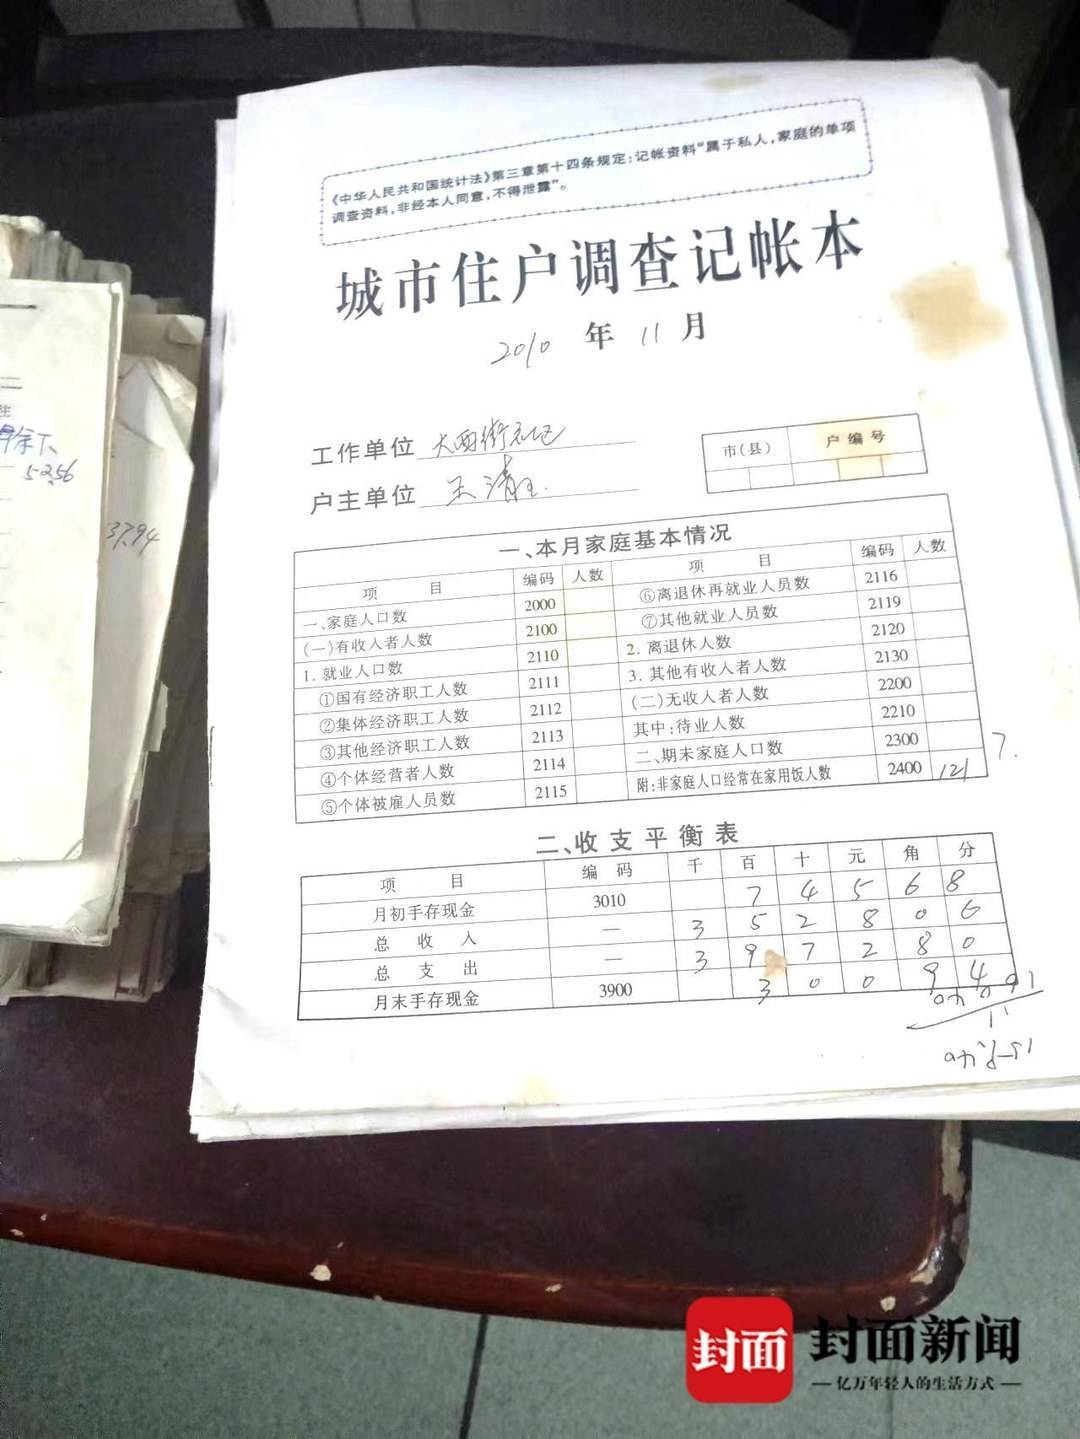 《中华人民共和国统计法》第三章第十四条规定:记帐资料"属于私人,家庭的单项
调查资料,非经本人同意,不得泄露"。
城市住户调查记帐本
2010 年 11 月
工作单位 大西街社区
户主单位 王清
市(县) 户编号
一、本月家庭基本情况
项 目 编码 人数 项 目 编码 人数
一、家庭人口数 2000 ⑥离退休再就业人员数 2116
(一)有收入者人数 2100 ⑦其他就业人员数 2119
1. 就业人口数 2110 2. 离退休人数 2120
①国有经济职工人数 2111 3. 其他有收入者人数 2130
②集体经济职工人数 2112 (二)无收入者人数 2200
③其他经济职工人数 2113 其中:待业人数 2210
④个体经营者人数 2114 二、期末家庭人口数 2300 7.
⑤个体被雇人员数 2115 附:非家庭人口经常在家用饭人数 2400 121
二、收支平衡表
项 目 编 码 千 百 十 元 角 分
月初手存现金 3010 7 4 5 6 8
总 收 入 — 3 5 2 8 0 6
总 支 出 — 3 9 7 2 8 0
月末手存现金 3900 3 0 0 9 4
52.56
37.94
封面
封面新闻
亿万年轻人的生活方式